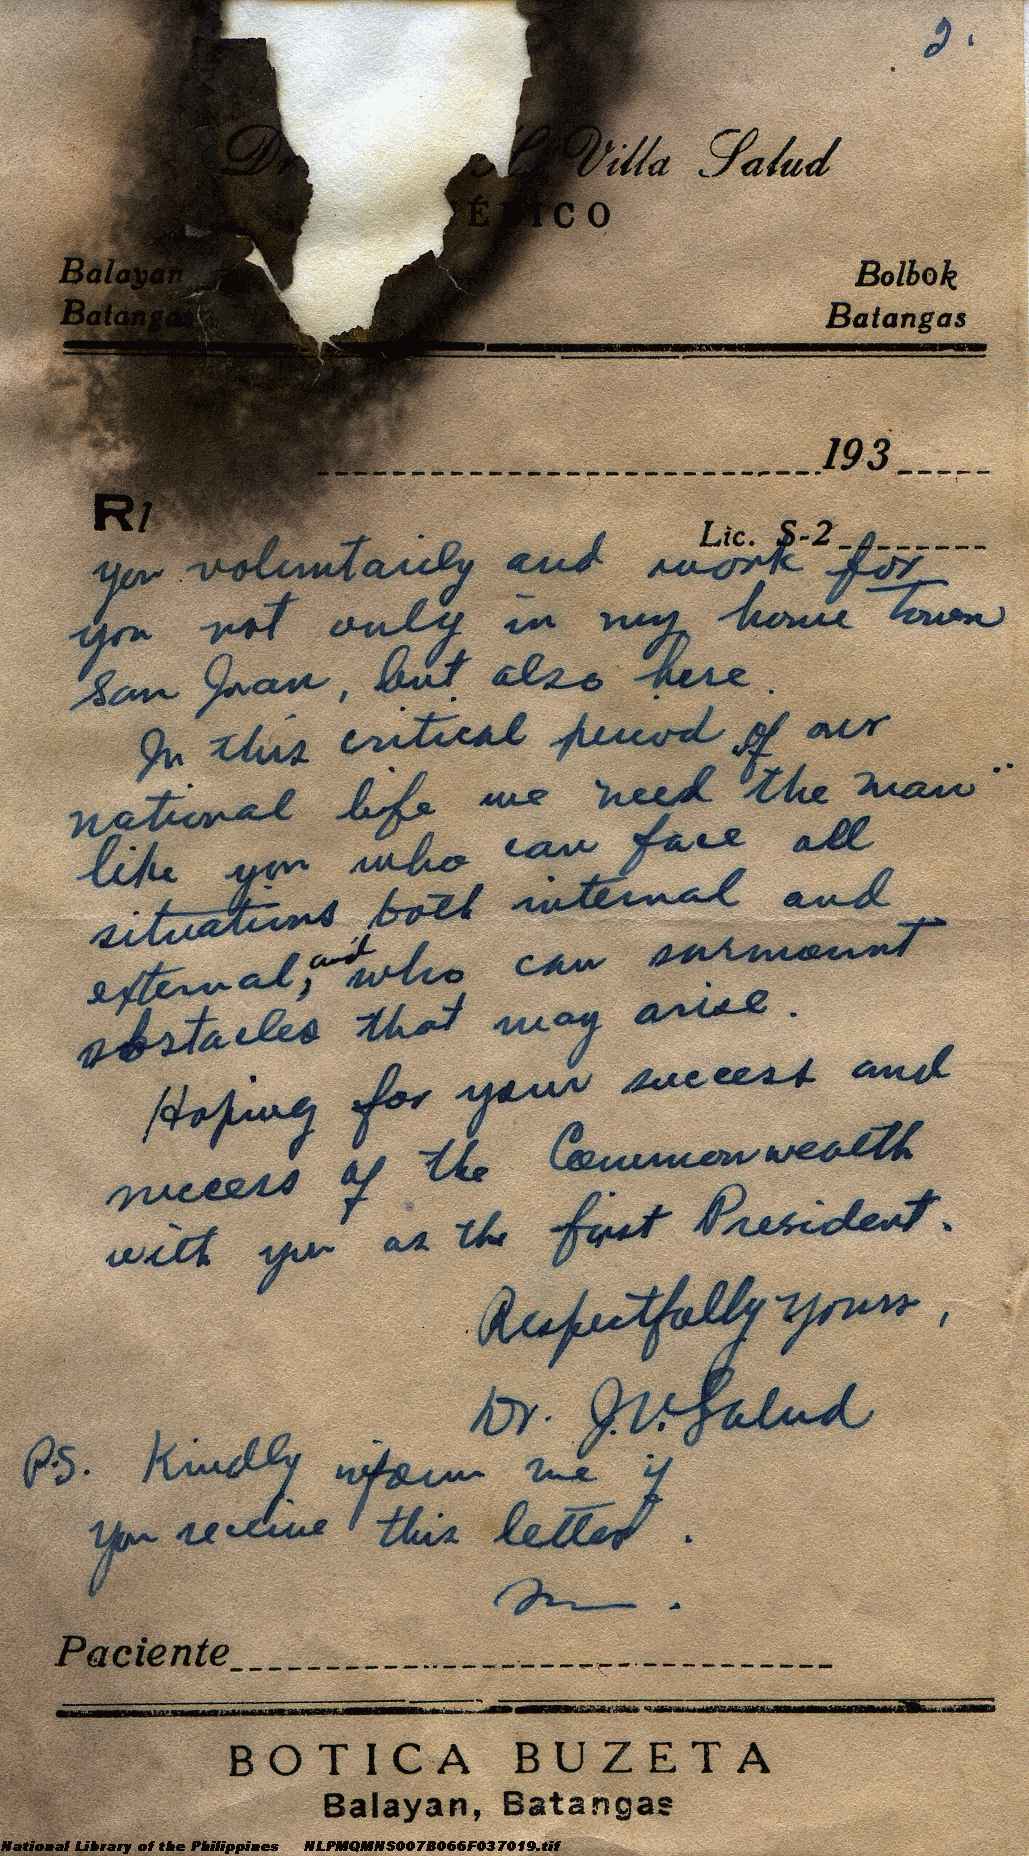 2.
Villa Salud
Balayan Bolbok
Batangas Batangas
193
R/
Lic. S-2
you voluntarily and work for
you not only in my home town
San Juan, but also here.
In this critical period of our
national life we need "the man"
like you who can face all
situations both internal and
external, and who can surmount
obstacles that may arise.
Hoping for your success and
success of the Commonwealth
with you as the first President.
Respectfully yours,
Dr. J.V. Salud
P.S. Kindly inform me if
you receive this letter.
Paciente
BOTICA BUZETA
Balayan, Batangas
National Library of the Philippines NLPMQMNS007B066F037019.tif